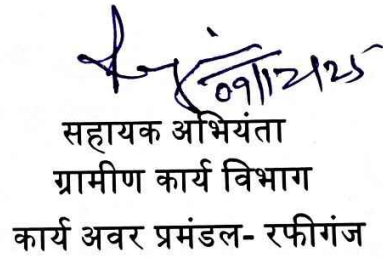 09/12/25
सहायक अभियंता
ग्रामीण कार्य विभाग
कार्य अवर प्रमंडल- रफीगंज